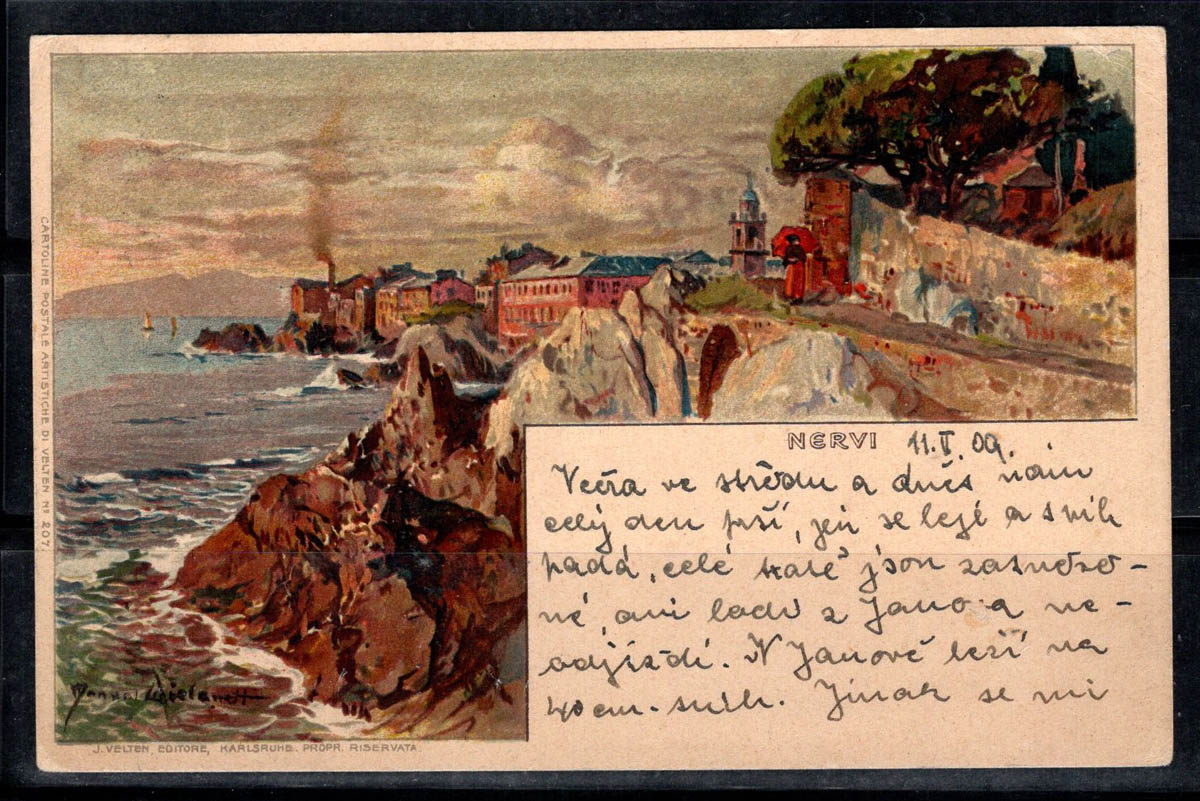 NERVI 11.I.09.
Večra ve středu a dnes nám
celý den prší, jen se leje a sníh
padá, celé tratě jsou zasněže-
né, ani lodi z Janova ne-
odjíždí. V Janově leží na
40 cm. sníh. Jinak se mi
CARTOLINE POSTALE ARTISTICHE DI VELTEN Nº 207.
J. VELTEN, EDITORE, KARLSRUHE. PROPR. RISERVATA.